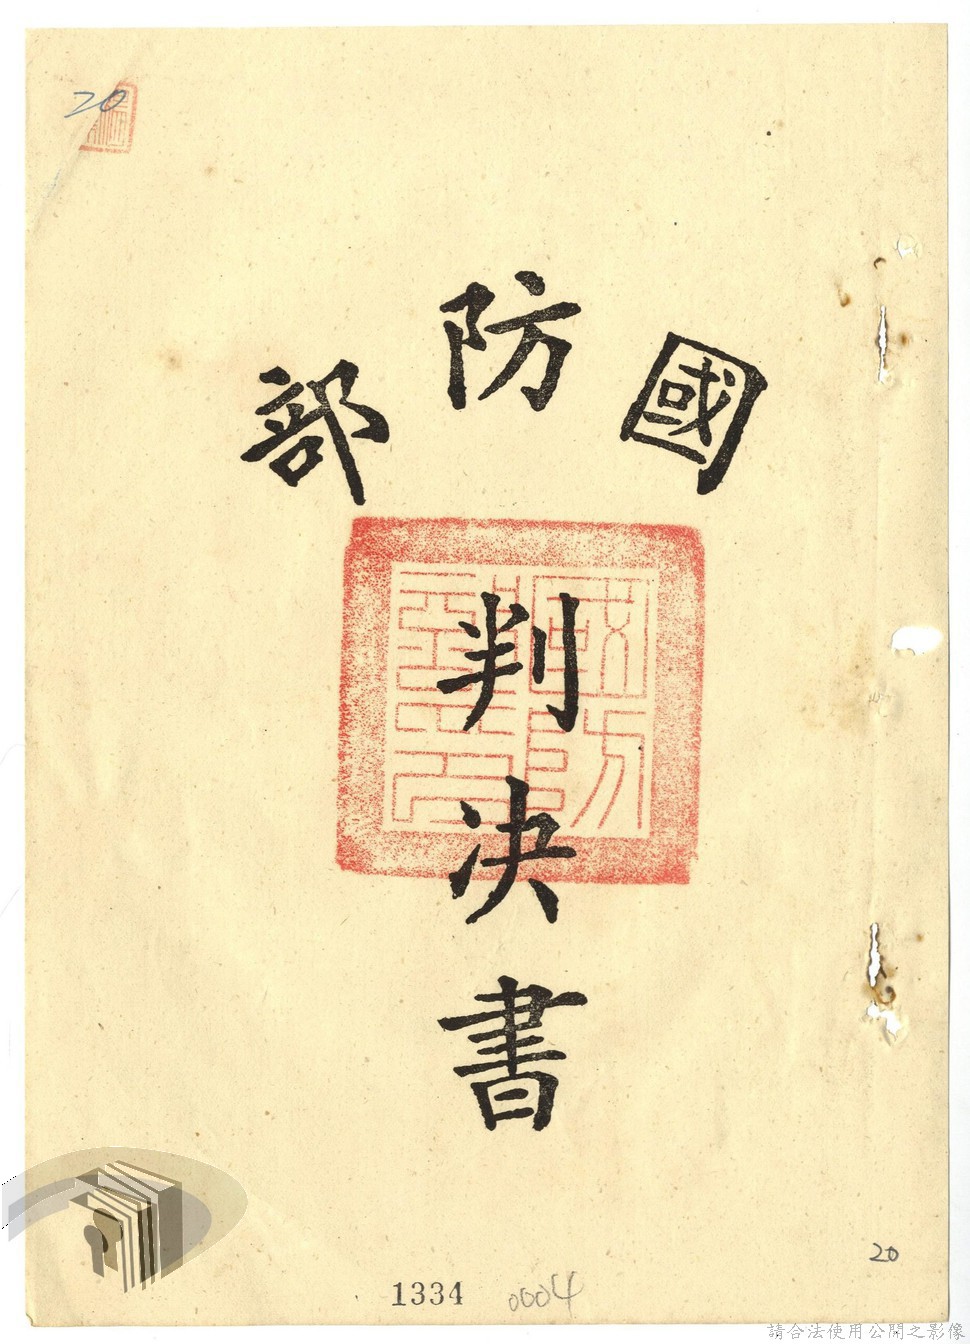 20
國防部
判決書
20
1334
0004
請合法使用公開之影像